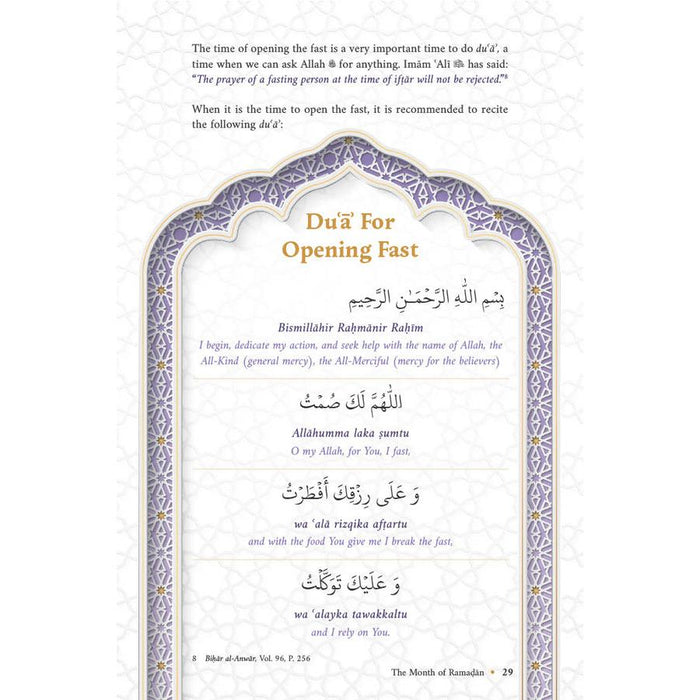 The time of opening the fast is a very important time to do duʿāʾ, a
time when we can ask Allah ﷻ for anything. Imām ʿAlī has said:
“The prayer of a fasting person at the time of ifṭār will not be rejected.”⁸
When it is the time to open the fast, it is recommended to recite
the following duʿāʾ:
Duʿāʾ For
Opening Fast
بِسْمِ اللّٰهِ الرَّحْمَـٰنِ الرَّحِيمِ
Bismillāhir Raḥmānir Raḥīm
I begin, dedicate my action, and seek help with the name of Allah, the
All-Kind (general mercy), the All-Merciful (mercy for the believers)
اَللّٰهُمَّ لَكَ صُمْتُ
Allāhumma laka ṣumtu
O my Allah, for You, I fast,
وَ عَلَى رِزْقِكَ أَفْطَرْتُ
wa ʿalā rizqika afṭartu
and with the food You give me I break the fast,
وَ عَلَيْكَ تَوَكَّلْتُ
wa ʿalayka tawakkaltu
and I rely on You.
8 Biḥār al-Anwār, Vol. 96, P. 256
The Month of Ramaḍān • 29